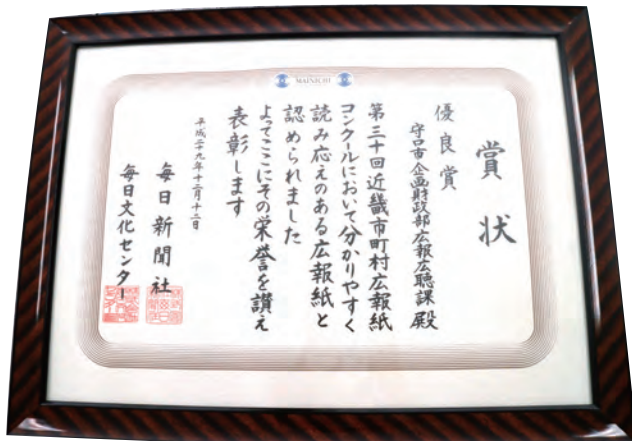 MAINICHI
賞状
優良賞
守口市企画財政部広報広聴課殿
第三十回近畿市町村広報紙
コンクールにおいて分かりやすく
読み応えのある広報紙と
認められました
よってここにその栄誉を讃え
表彰します
平成二十九年十二月十二日
毎日新聞社
毎日文化センター